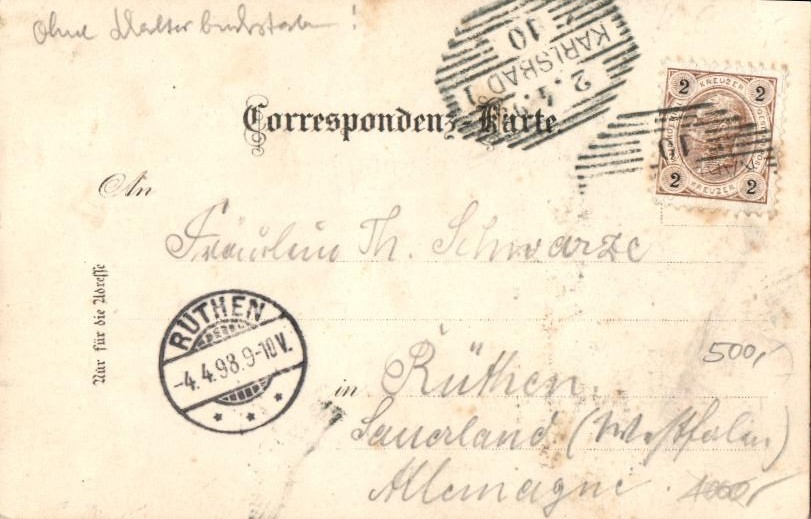 Ohne !
KARLSBAD 1
2.4.
10
Correspondenz-Karte.
2 KREUZER 2
2 KREUZER 2
An
Fräulein Th. Schwarze
Nur für die Adresse
RÜTHEN
-4.4.98.9-10V.
500,-
in Rüthen.
Sauerland (Westfalen)
Allemagne.
1000,-